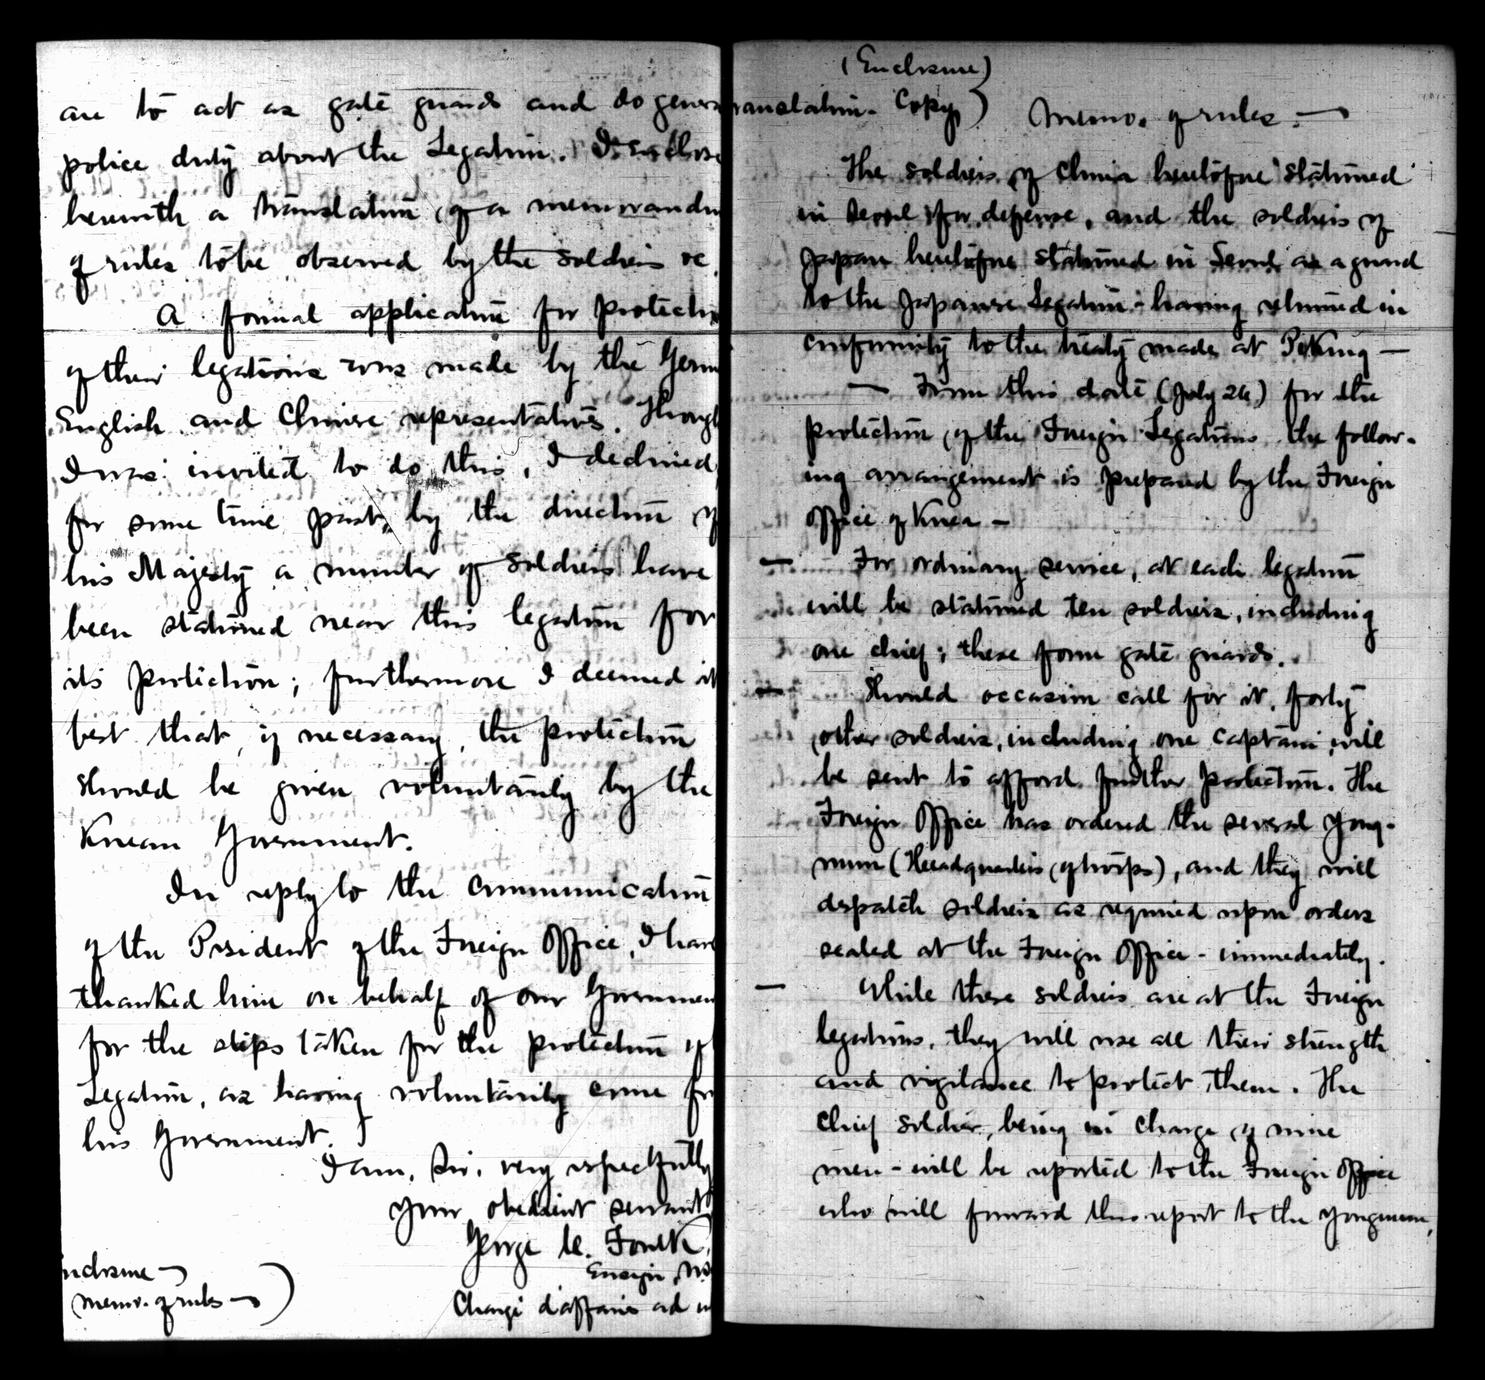 are to act as gate guards and do genera
police duty about the Legation. I enclose
herewith a translation of a memorandu
of rules to be observed by the soldiers &c.
A formal application for protecti
of their legations was made by the Germ
English and Chinese representatives. Though
I was invited to do this, I declined,
for some time past, by the direction of
his Majesty a number of soldiers have
been stationed near this legation for
its protection; furthermore I deemed it
best that, if necessary, the protection
should be given voluntarily by the
Korean Government.
In reply to the communication
of the President of the Foreign Office, I have
thanked him on behalf of our Governmen
for the steps taken for the protection of
Legation, as having voluntarily come fro
his Government.
I am, Sir, very respectfully
your obedient servant
George C. Foulk,
Ensign, 
Chargé d'affaires ad in
nclosure —
memo. of rules —)
(Enclosure)
ranslation. Copy) Memo. of rules. —
The soldiers of China heretofore stationed
in Seoul for defense, and the soldiers of
Japan heretofore stationed in Seoul as a guard
to the Japanese Legation - having returned in
conformity to the treaty made at Peking —
— From this date (July 26) for the
protection of the Foreign Legations the follow-
ing arrangement is prepared by the Foreign
Office of Korea —
— For ordinary service, at each legation
will be stationed ten soldiers, including
one chief; these form gate guards.
— Should occasion call for it, forty
other soldiers, including one captain, will
be sent to afford further protection. The
Foreign Office has ordered the several Yong-
mun (Headquarters of troops), and they will
dispatch soldiers as required upon orders
sealed at the Foreign Office - immediately.
— While these soldiers are at the Foreign
legations, they will use all their strength
and vigilance to protect them. The
chief soldier, being in charge of nine
men - will be reported to the Foreign Office
who will forward this report to the Yongmun,